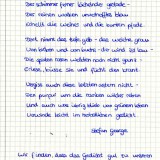 Der schimmer ferner lächelnder gestade ·
Der reinen wolken unverhofftes blau
Erhellt die weiher und die bunten pfade
Dort nimm das tiefe gelb · das weiche grau
Von birken und von buchs · der wind ist lau ·
Die späten rosen welkten noch nicht ganz ·
Erlese küsse sie und flicht den kranz
Vergiss auch diese letzten astern nicht ·
Den purpur um die ranken wilder reben
Und auch was übrig blieb von grünem leben
Verwinde leicht im herbstlichen gesicht
Stefan George
Wir finden, dass das Gedicht gut zu unserer